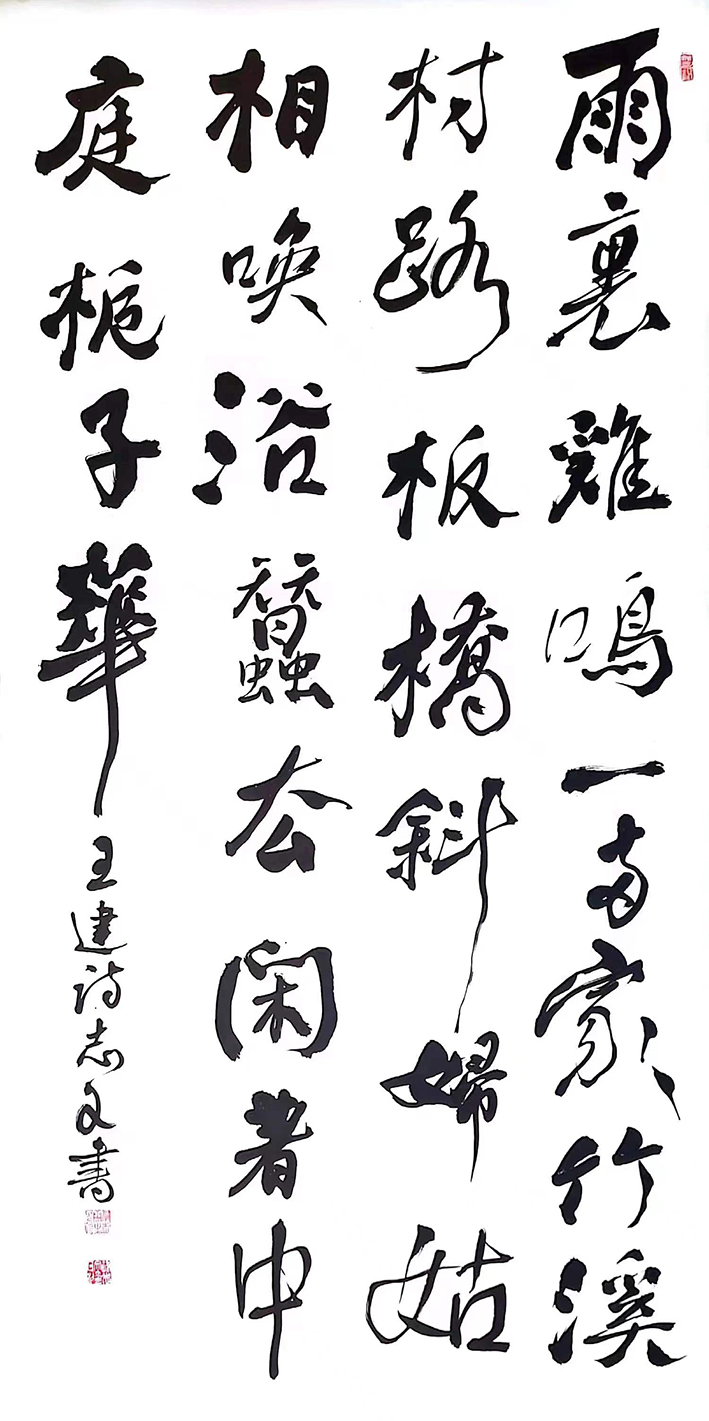 雨裏雞鳴一兩家竹溪
村路板橋斜婦姑
相喚浴蠶去閑著中
庭梔子華
王建詩志文書